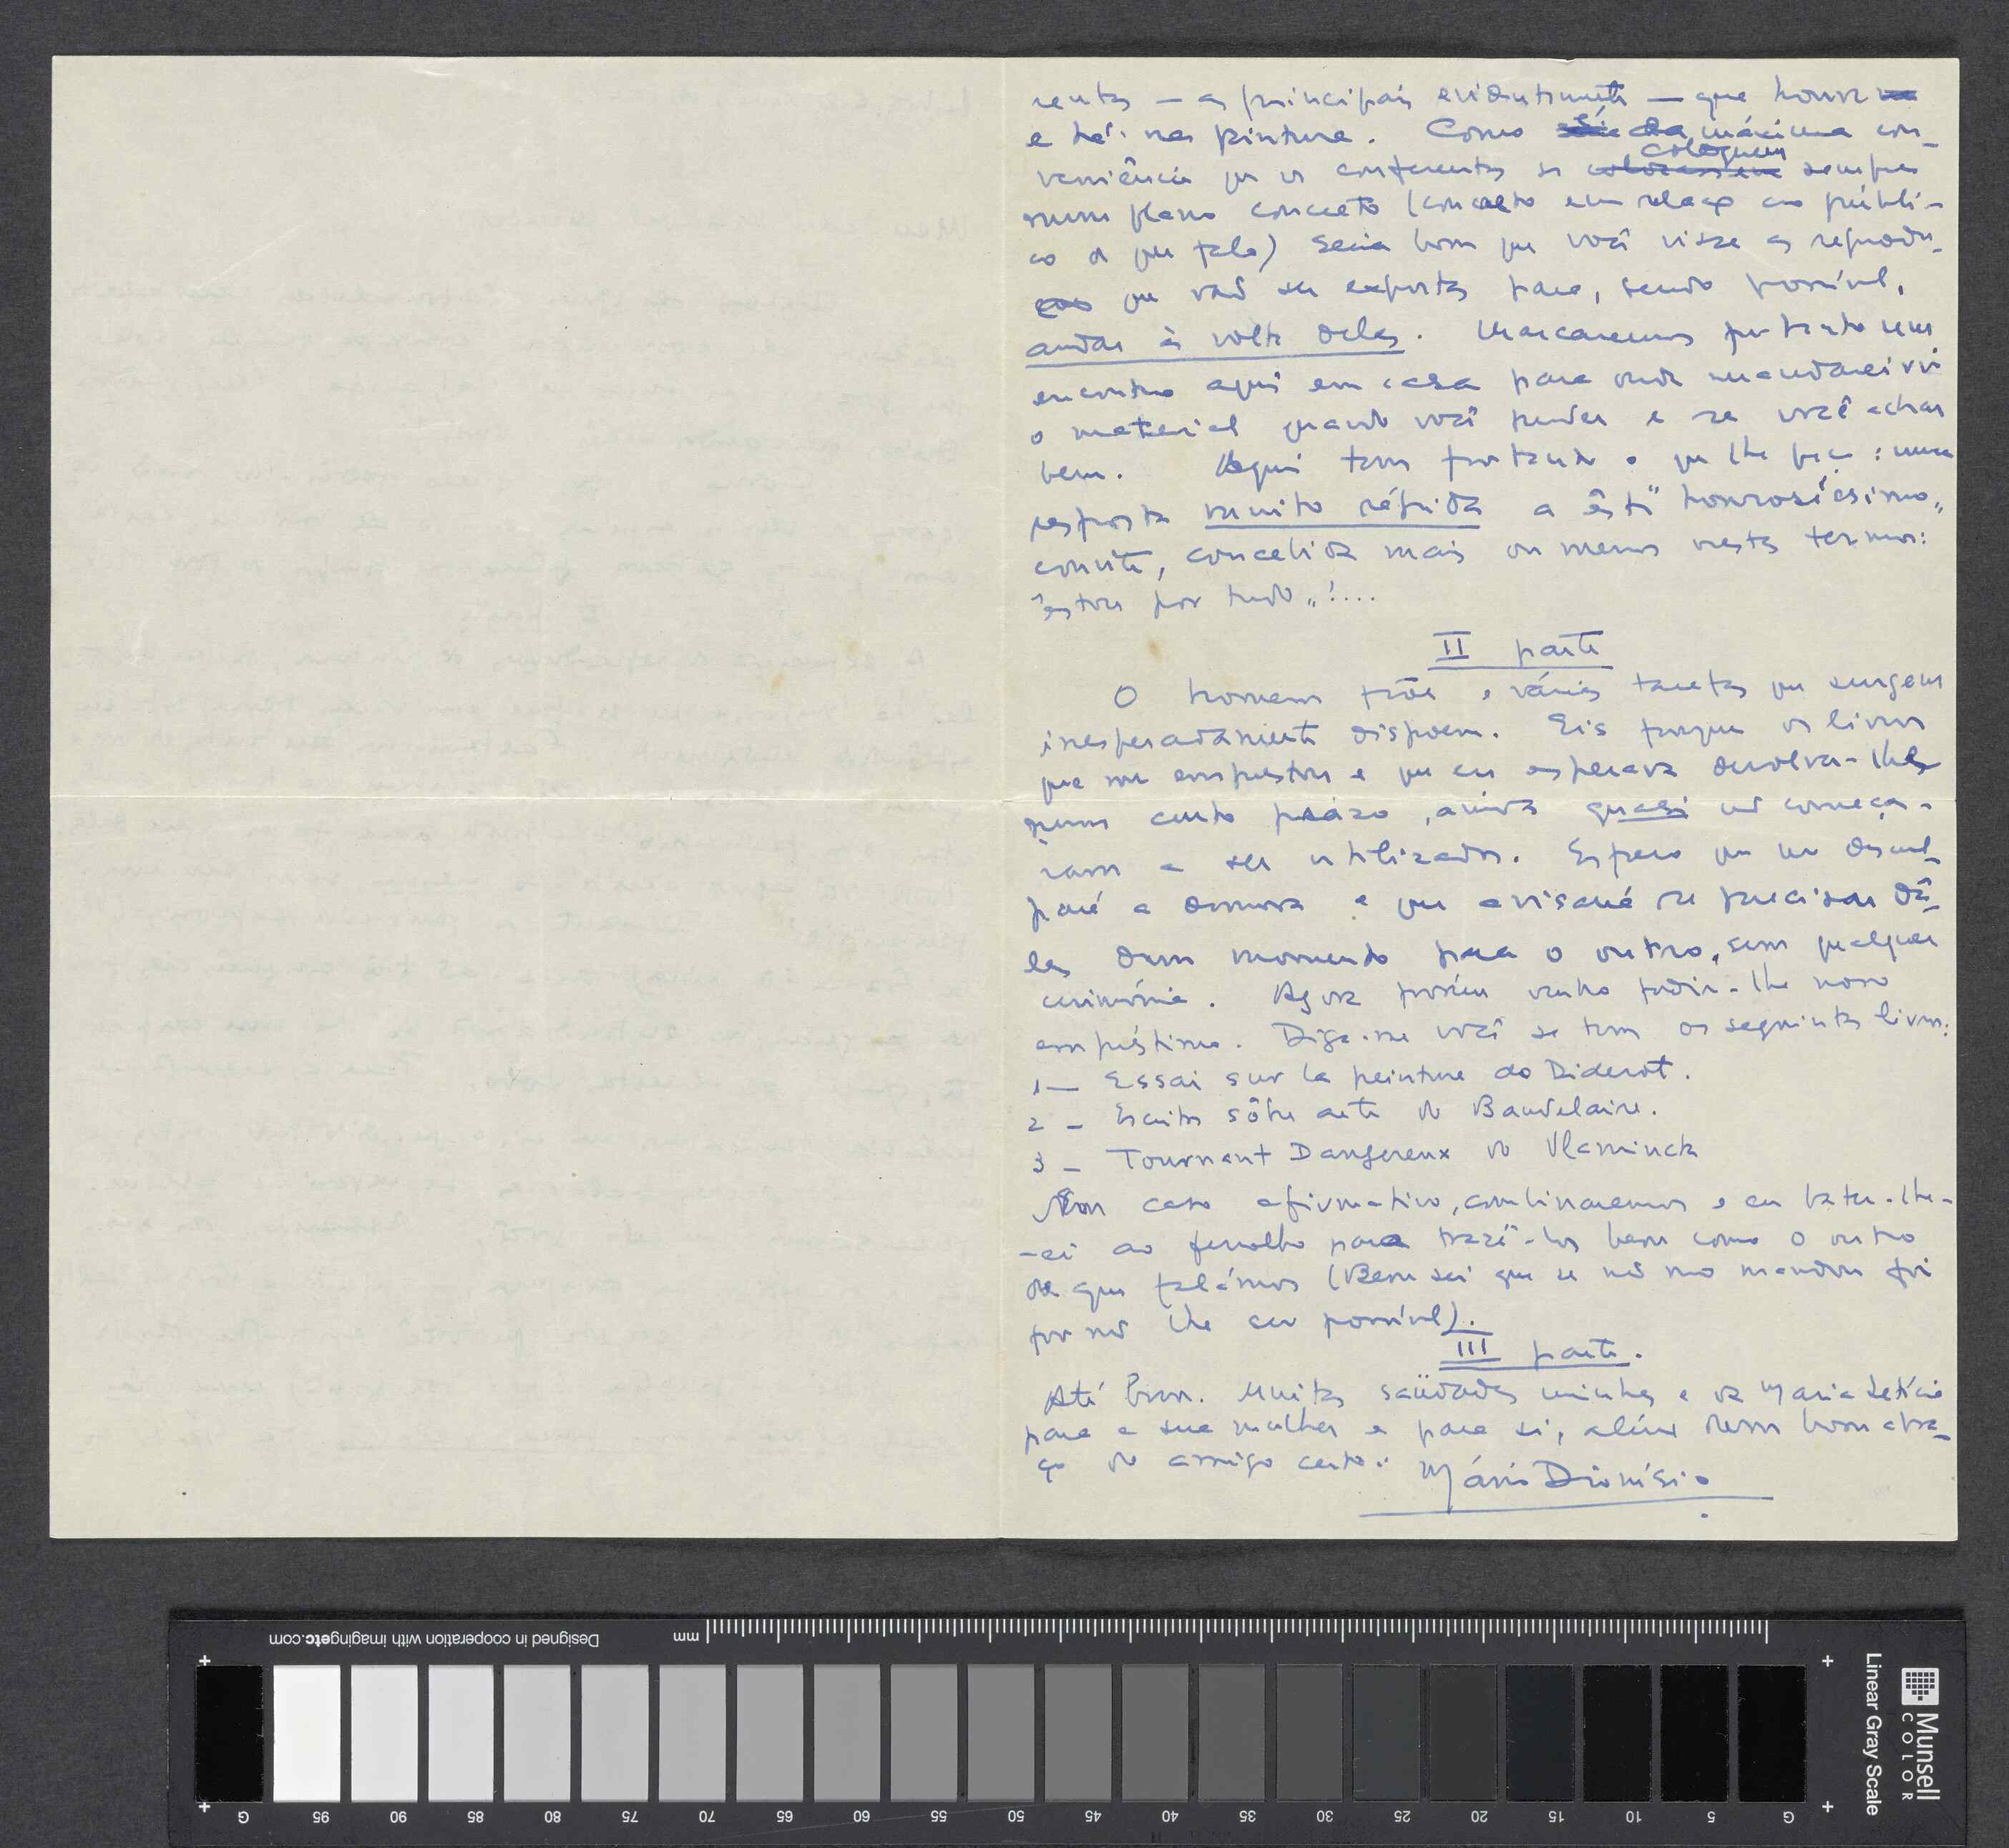 rentes — as principais evidentemente — que houve
e há na pintura. Como é da máxima con-
veniência que os conferentes se coloquem sempre
num plano concreto (concreto em relação ao públi-
co a que fala) seria bom que você visse as reprodu-
ções que vão ser expostas para, sendo possível,
andar à volta delas. Marcaremos portanto um
encontro aqui em casa para onde mandarei vir
o material quando você puder e se você achar
bem. Aqui tem portanto o que lhe peço: uma
resposta muito rápida a êste "honrosíssimo"
convite, concebida mais ou menos nestes termos:
"estou por tudo"!...
II parte
O homem põe e várias tarefas que surgem
inesperadamente dispoem. Eis porque os livros
que me emprestou e que eu esperava devolver-lhe
num curto prazo, ainda quasi não começa-
ram a ser utilizados. Espero que me descul-
pará a demora e que avisará se precisar dê-
les dum momento para o outro, sem qualquer
cerimónia. Agora porém venho pedir-lhe novo
empréstimo. Diga-me você se tem os seguintes livros:
1 — Essai sur la peinture do Diderot.
2 — Escritos sôbre arte do Baudelaire.
3 — Tournant Dangereux do Vlaminck
Num caso afirmativo, combinaremos e eu bater-lhe-
-ei ao ferrolho para trazê-los bem como o outro
de que falámos (Bem sei que se não mo mandou foi
por não lhe ser possível).
III parte.
Até breve. Muitas saüdades minhas e da Maria Letícia
para a sua mulher e para si, além dum bom abra-
ço do amigo certo: Mário Dionísio
Designed in cooperation with imagingetc.com
mm
G 95 90 85 80 75 70 65 60 55 50 45 40 35 30 25 20 15 10 5 G
Munsell
COLOR
Linear Gray Scale